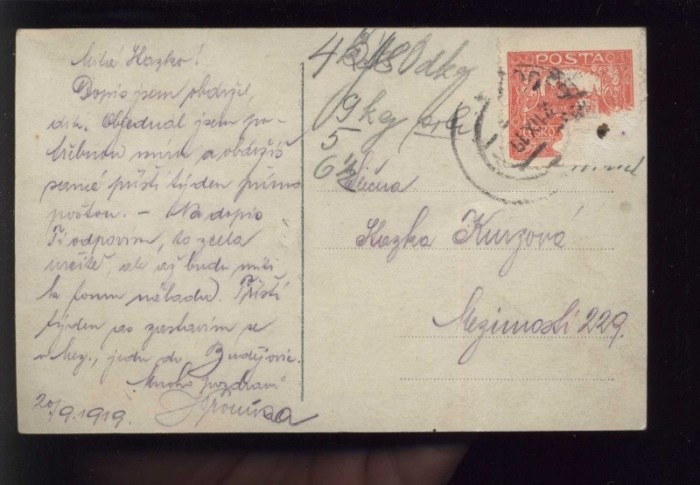 Milá Hazko!
Dopis jsem obdržel,
dík. Objednal jsem po-
třebnou míru a obdržíš
příští týden přímo
poštou. – Na dopis
Ti odpovím, to zcela
určitě, až budu míti
k tomu náladu. Příští
týden se zastavím
v Mez., jedu do Budějovic.
Mnoho pozdravů
20/9.1919.
4 kg 80 dkg
9 kg
5
6 1/2
POSTA
Slečna
Hazka Kurzová
Mezimostí 229.